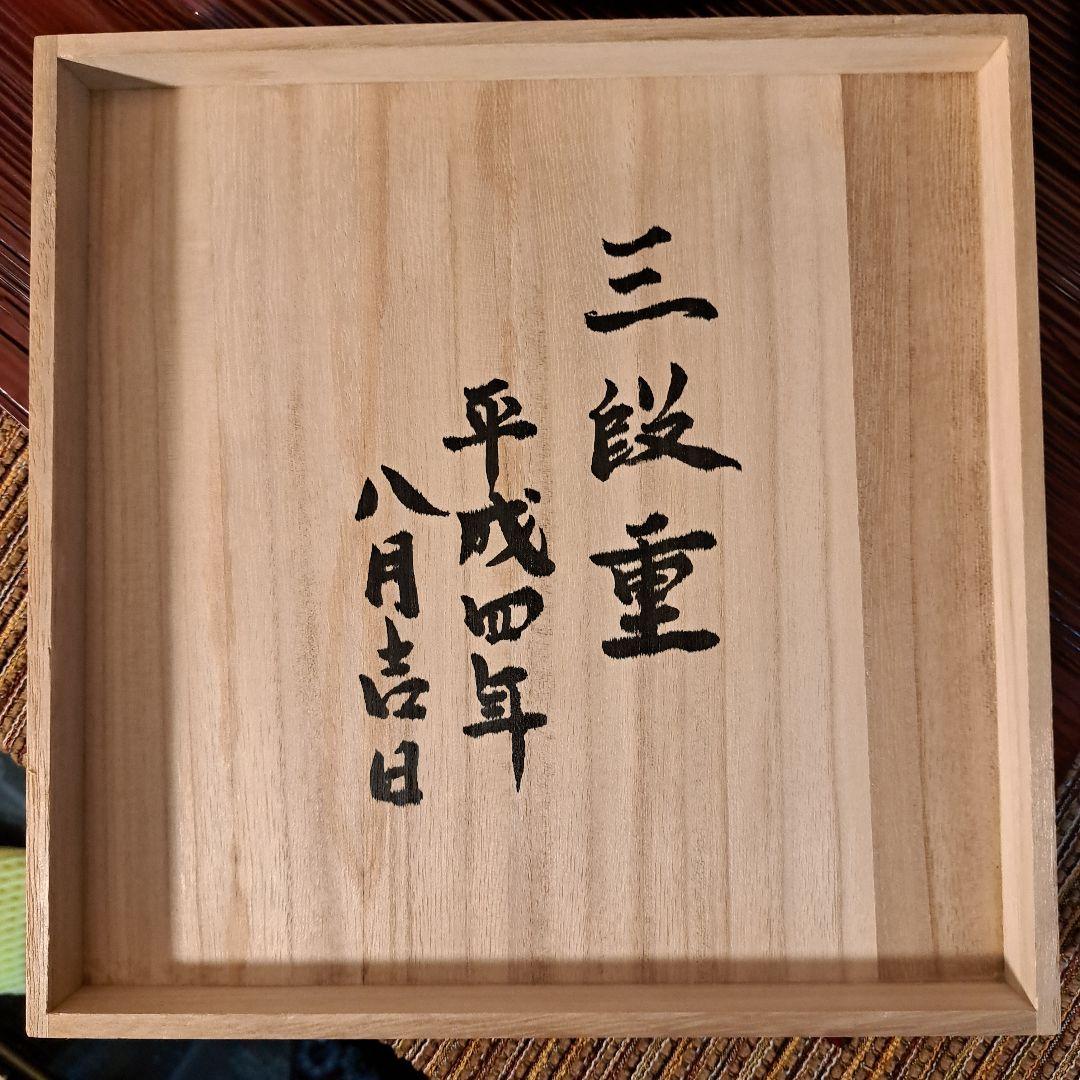 三段重
平成四年
八月吉日